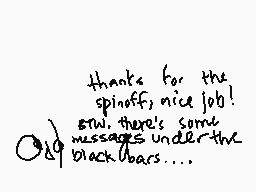 thanks for the
spinoff, nice job!
BTW, there's some
messages under the
black bars....